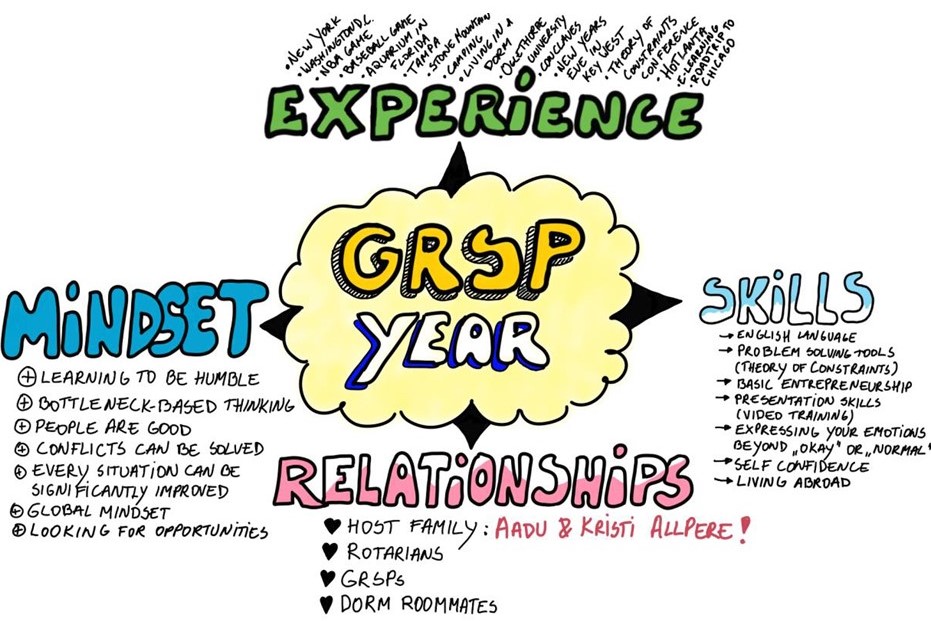 • NEW YORK
• WASHINGTON D.C.
• NBA GAME
• BASEBALL GAME
• AQUARIUM IN
FLORIDA
• TAMPA
• STONE MOUNTAIN
• CAMPING
• LIVING IN A
DORM
• OGLETHORPE
UNIVERSITY
• CONCLAVES
• NEW YEARS
EVE IN
KEY WEST
• THEORY OF
CONSTRAINTS
CONFERENCE
• HOTLANTA
• E-LEARNING
• ROADTRIP TO
CHICAGO
EXPERIENCE
GRSP
YEAR
MINDSET
⊕ LEARNING TO BE HUMBLE
⊕ BOTTLENECK-BASED THINKING
⊕ PEOPLE ARE GOOD
⊕ CONFLICTS CAN BE SOLVED
⊕ EVERY SITUATION CAN BE
SIGNIFICANTLY IMPROVED
⊕ GLOBAL MINDSET
⊕ LOOKING FOR OPPORTUNITIES
SKILLS
→ ENGLISH LANGUAGE
→ PROBLEM SOLVING-TOOLS
(THEORY OF CONSTRAINTS)
→ BASIC ENTREPRENEURSHIP
→ PRESENTATION SKILLS
(VIDEO TRAINING)
→ EXPRESSING YOUR EMOTIONS
BEYOND „OKAY" OR „NORMAL"
→ SELF CONFIDENCE
→ LIVING ABROAD
RELATIONSHIPS
♥ HOST FAMILY: AADU & KRISTI ALLPERE!
♥ ROTARIANS
♥ GRSPs
♥ DORM ROOMMATES